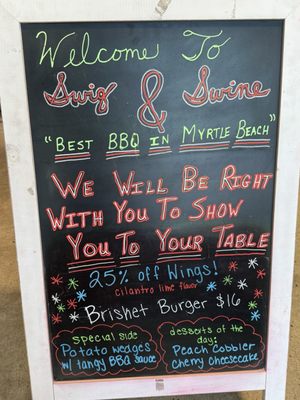 Welcome To
Swig & Swine
"Best BBQ in Myrtle Beach"
We Will Be Right
With You To Show
You To Your Table
25% off Wings!
cilantro lime flavor
Brisket Burger $16
special side
Potato wedges
w/ tangy BBQ sauce
desserts of the
day:
Peach Cobbler
Cherry Cheesecake